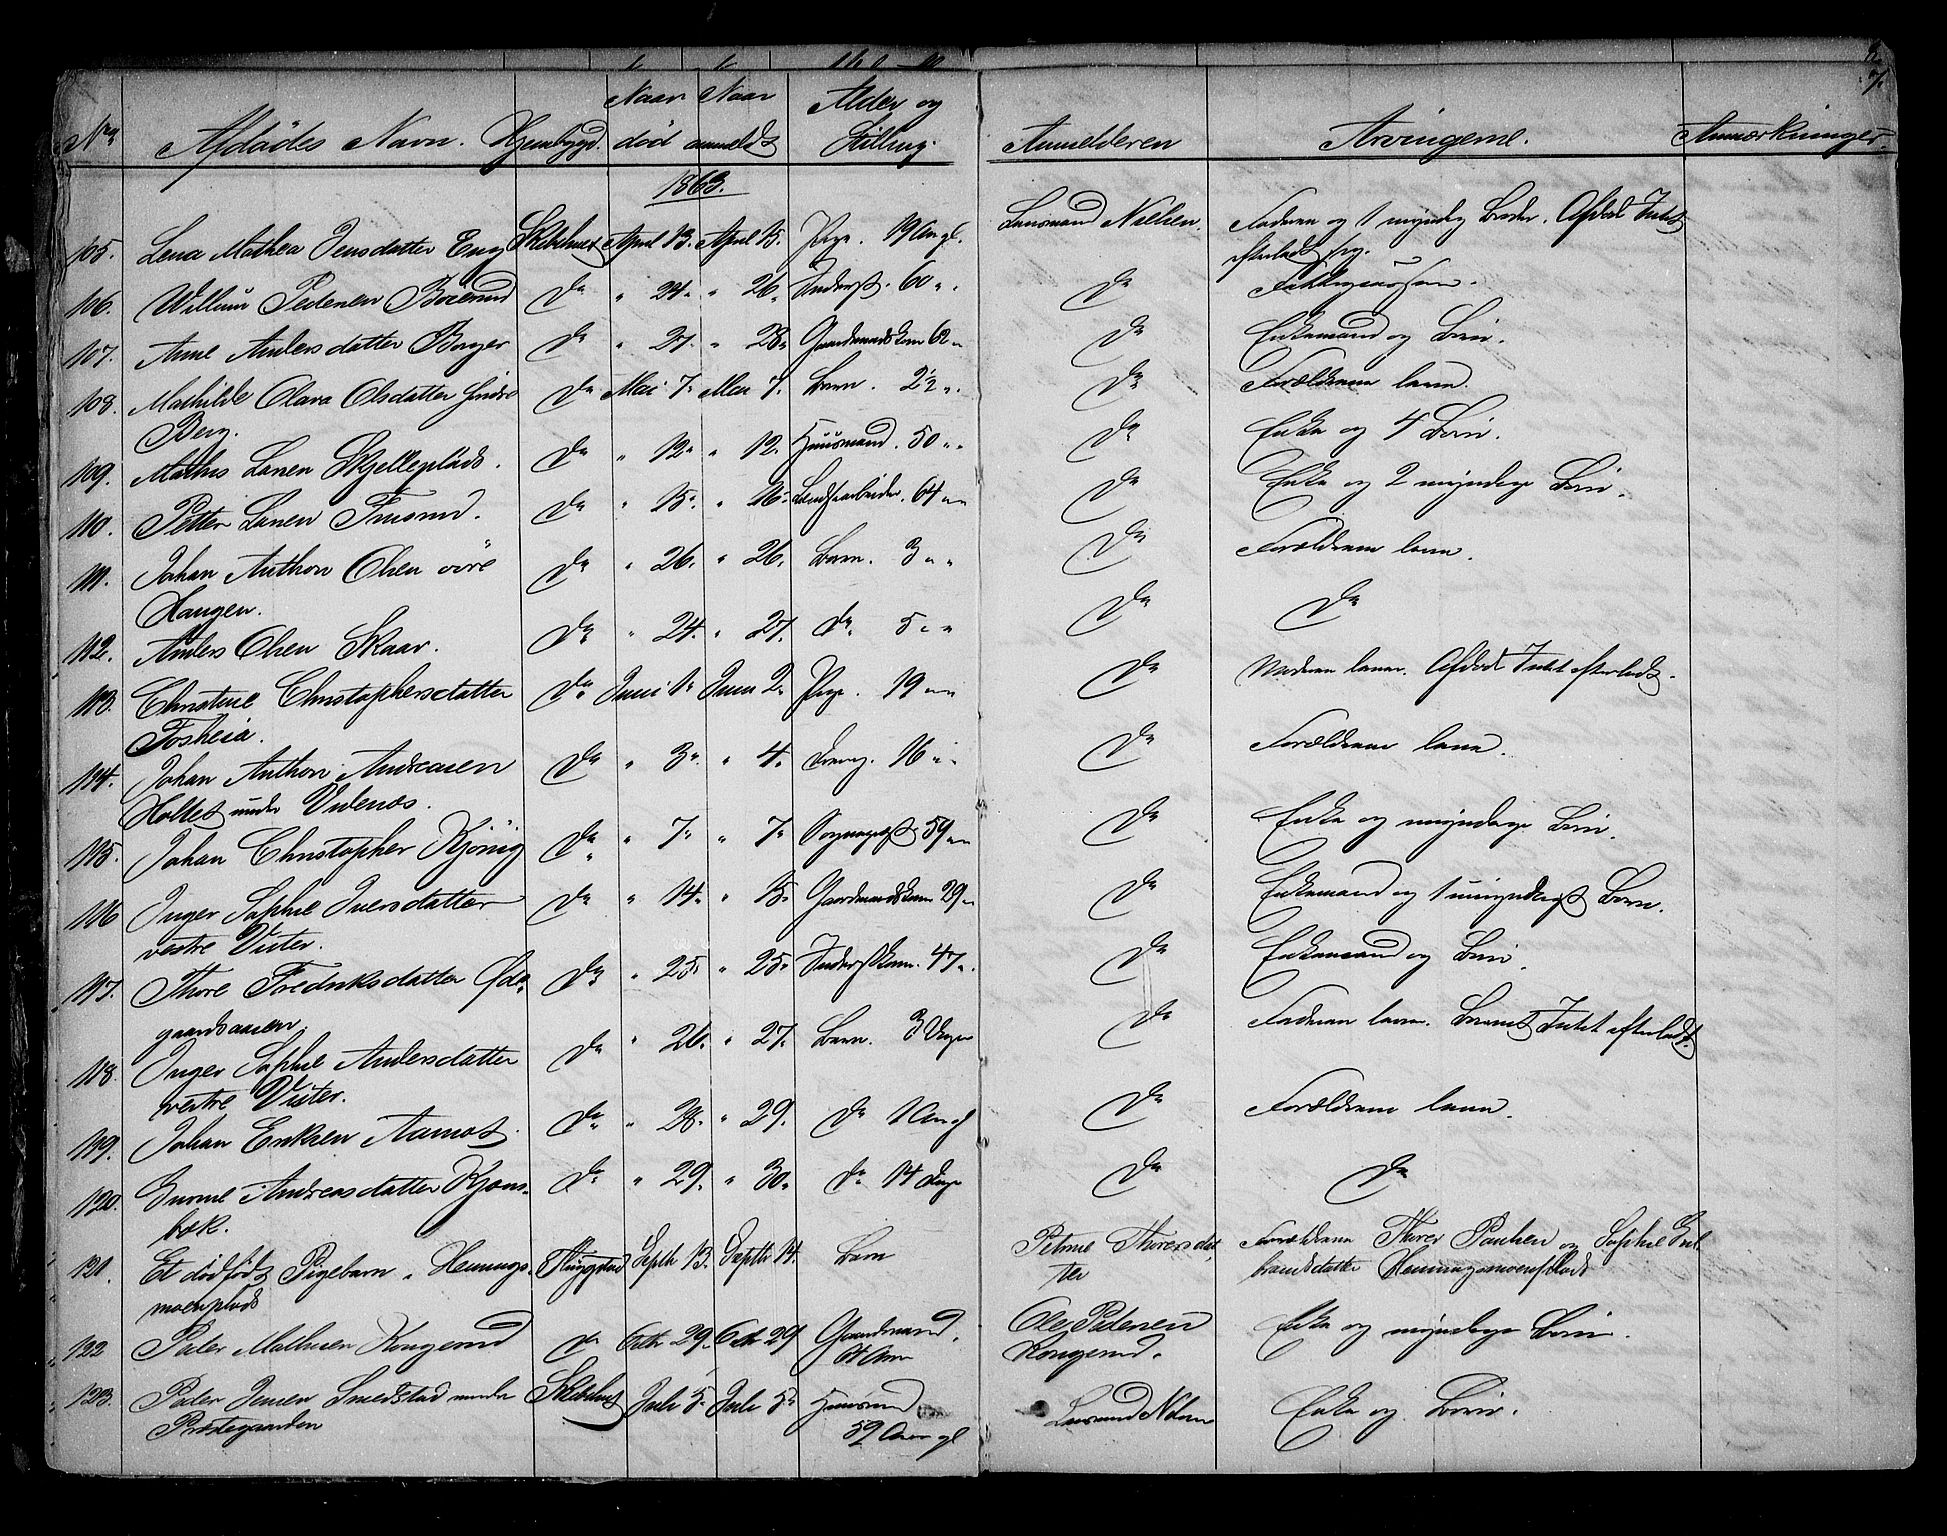 7.
No Afdödes Navn. Hjembygd. Naar död Naar anmeldt Alder og Stilling. Anmelderen Arvingerne. Anmærkninger.
1863.
105. Lena Mathea Jensdatter Eng Skibthvet April 13. April 15. Pige. 19 Aar gl. Lensmand Nielsen. Faderen og 1 myndig Broder. Afdöde Intet
efterladt sig.
106. Willum Pedersen do " 24. " 26. Inderst. 60 " do
107. Anne Andersdatter Borger do " 27. " 28. Gaardmandskone 62 " do Enkemand og Börn.
108. Mathilde Clara Olsdatter Berg. do Mai 7. Mai 7. Barn. 2½ " do Forældrene lever.
109. Mathis Larsen Skjelleplads. do " 12. " 12. Huusmand. 50 " do Enke og 4 Börn.
110. Petter Larsen do " 15. " 16. 64 " do Enke og 2 myndige Börn.
111. Johan Anthon Olsen övre
Haugen. do " 26. " 26. Barn. 3 " do Forældrene lever.
112. Anders Olsen Skaar. do " 24. " 27. do 5 " do do
113. Christine Christophersdatter
Fosheia. do Juni 1. Juni 2. Pige. 19 " do Moderen lever. Afdöde Intet efterladt.
114. Johan Anthon Andreasen
Holtet under Videnæs. do " 3. " 4. Dreng. 16 " do Forældrene lever.
115. Johan Christopher Kjönig do " 7. " 7. Sogneprest. 59 " do Enke og myndige Börn.
116 Inger Sophie Iversdatter
vestre Vister. do " 14. " 15. Gaardmandskone 29 " do Enkemand og 1 umyndigt Barn.
117. Thore Fredriksdatter Öde-
gaardsaasen. do " 25. " 25. Inderstkone. 47 " do Enkemand og Börn.
118. Inger Sophie Andersdatter
vestre Vister. do " 26. " 27. Barn. 3 Uger do Faderen lever. Barnet Intet efterladt.
119. Johan Eriksen Aamot. do " 28. " 29. do 1 Aar gl do Forældrene lever.
120. Andreasdatter Kjöns-
bæk. do " 29. " 30. do 14 Dage do do
121. Et dödfödt Pigebarn, Hennings-
moenplads Septb 13. Septb 14. Barn Petrine Thoresdat-
ter Forældrene Thorer Paulsen og Sophie
Henningsmoenplads
122 Peder Mathisen Kongerud do Octb 29. Octb 29 Gaardmand. Ole Pedersen
Kongerud. Enke og myndige Börn.
123. Peder Jensen Smedstad under
Præstegaarden Skibthvet Juli 5. Juli 5. Huusmand
59 Aar gl Lensmand Nielsen Enke og Börn.